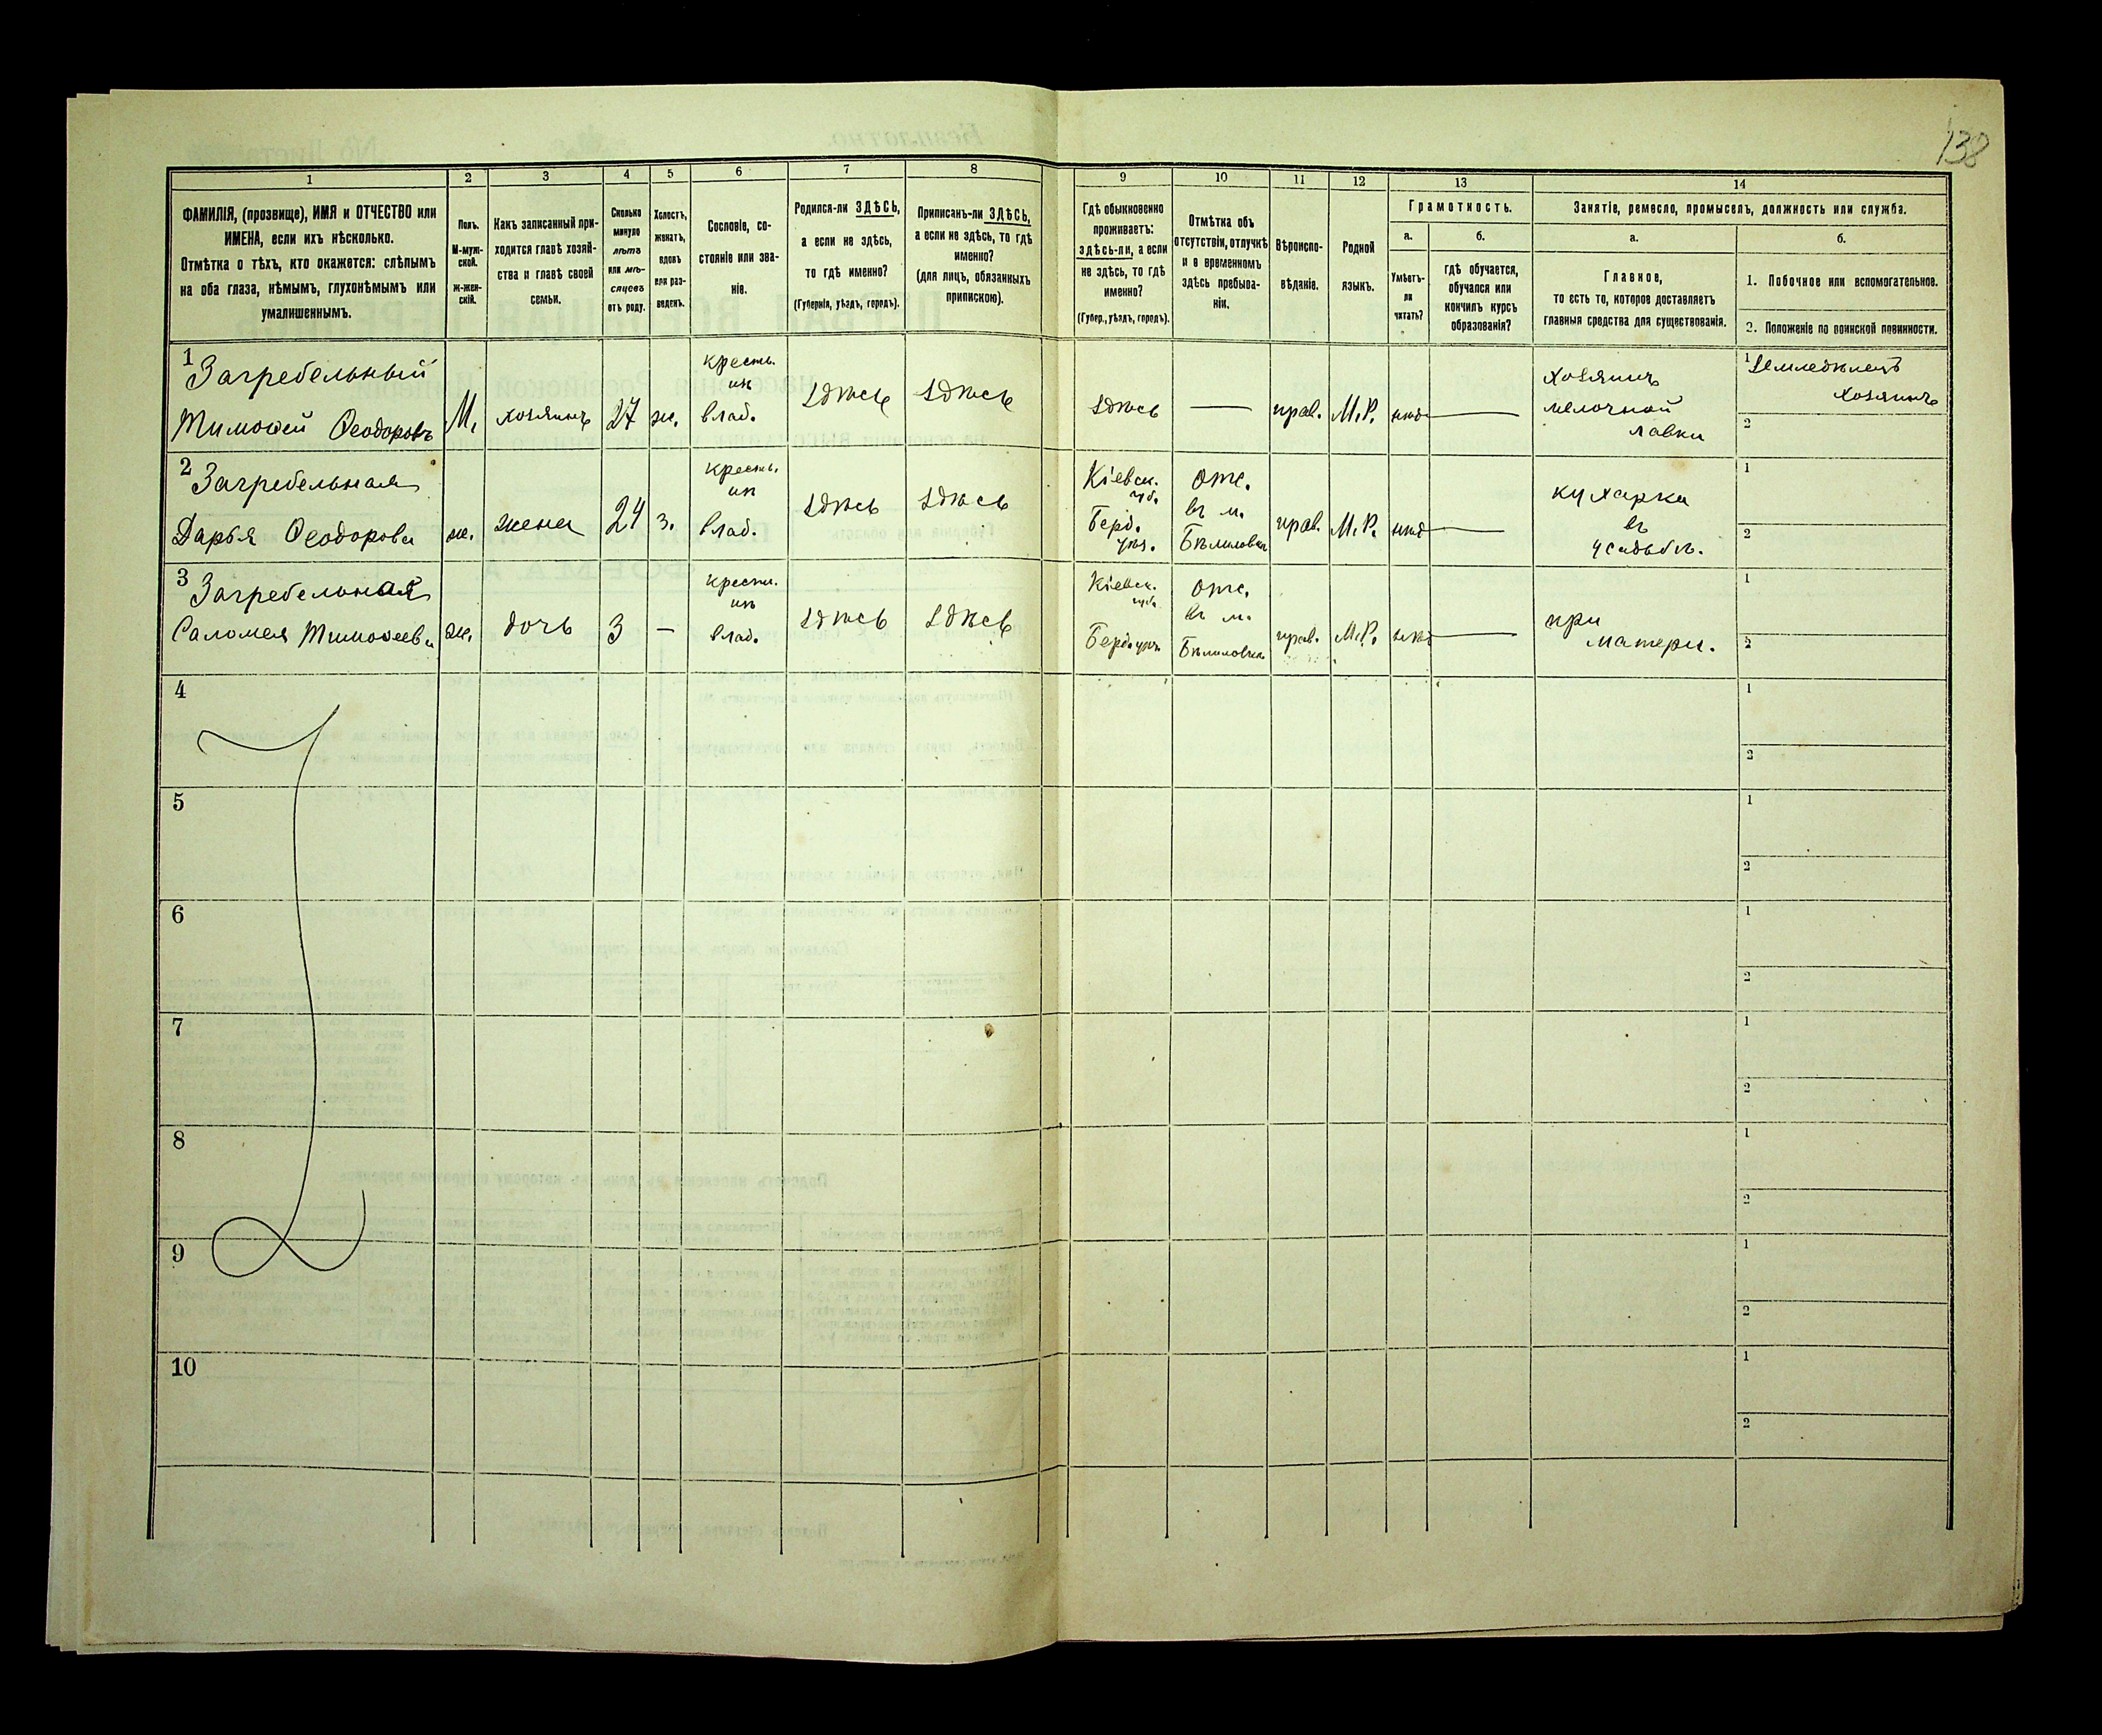 138
1 2 3 4 5 6 7 8 9 10 11 12 13 14
ФАМИЛІЯ, (прозвище), ИМЯ и ОТЧЕСТВО или
ИМЕНА, если ихъ нѣсколько.
Отмѣтка о тѣхъ, кто окажется: слѣпымъ
на оба глаза, нѣмымъ, глухонѣмымъ или
умалишеннымъ.
Полъ.
М-муж-
ской.
Ж-жен-
скій.
Какъ записанный при-
ходится главѣ хозяй-
ства и главѣ своей
семьи.
Сколько
минуло
лѣтъ
или мѣ-
сяцевъ
отъ роду.
Холостъ,
женатъ,
вдовъ
или раз-
веденъ.
Сословіе, со-
стояніе или зва-
ніе.
Родился-ли ЗДѢСЬ,
а если не здѣсь,
то гдѣ именно?
(Губернія, уѣздъ, городъ).
Приписанъ-ли ЗДѢСЬ,
а если не здѣсь, то гдѣ
именно?
(для лицъ, обязанныхъ
припискою).
Гдѣ обыкновенно
проживаетъ:
здѣсь-ли, а если
не здѣсь, то гдѣ
именно?
(Губер., уѣздъ, городъ).
Отмѣтка объ
отсутствіи, отлучкѣ
и о временномъ
здѣсь пребыва-
ніи.
Вѣроиспо-
вѣданіе.
Родной
языкъ.
Грамотность.
а.
Умѣетъ-
ли
читать?
б.
гдѣ обучается,
обучался или
кончилъ курсъ
образованія?
Занятіе, ремесло, промыселъ, должность или служба.
а.
Главное,
то есть то, которое доставляетъ
главныя средства для существованія.
б.
1. Побочное или вспомогательное.
2. Положеніе по воинской повинности.
1 Загребельный
Тимоѳей Ѳеодоровъ
М.
хозяинъ
27
ж.
кресть.
изъ
влад.
здѣсь
здѣсь
здѣсь
—
прав.
М.Р.
нѣт
—
хозяинъ
мелочной
лавки
1 Земледѣлецъ
хозяинъ
2
2 Загребельная
Дарья Ѳеодорова
ж.
жена
24
з.
кресть.
изъ
влад.
здѣсь
здѣсь
Кіевск.
губ.
Берд.
уѣз.
отс.
въ м.
Бѣлиловка
прав.
М.Р.
нѣт
—
кухарка
въ
усадьбѣ.
1
2
3 Загребельная
Саломея Тимоѳеева
ж.
дочь
3
—
крестьян.
изъ
влад.
здѣсь
здѣсь
Кіевск.
губ.
Берд. уѣз.
отс.
въ м.
Бѣлиловка
прав.
М.Р.
нѣт
—
при
матери.
1
2
4
1
2
5
1
2
6
1
2
7
1
2
8
1
2
9
1
2
10
1
2